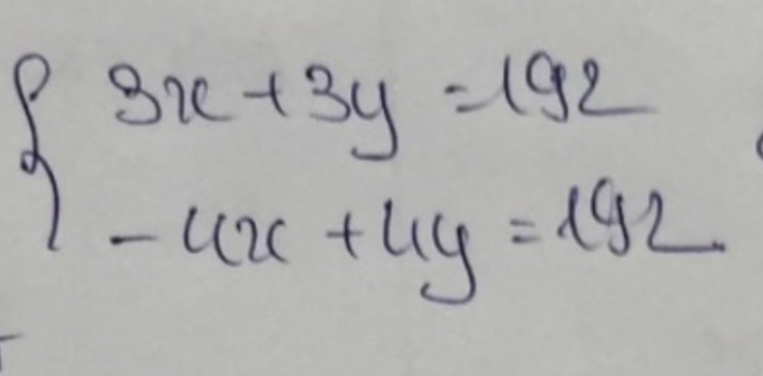 3x + 3y = 192
- 4x + 4y = 192